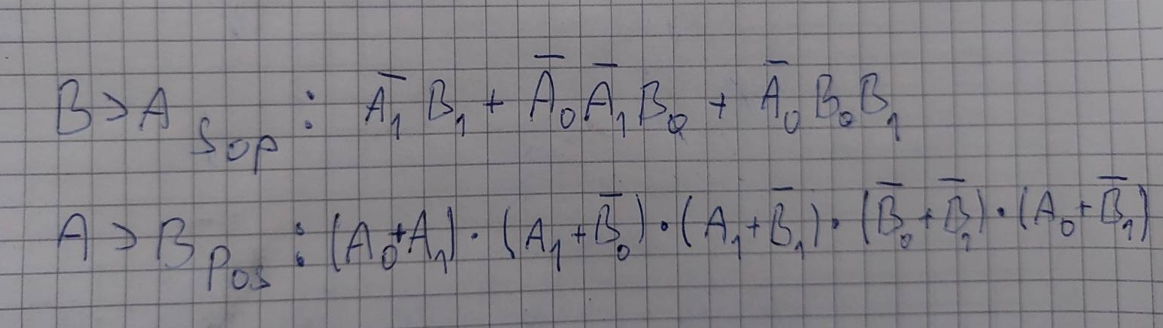 B>A SOP : A̅₁ B₁ + A̅₀ A̅₁ B₀ + A̅₀ B₀ B₁
A>B POS : (A₀+A₁) · (A₁+B̅₀) · (A₁+B̅₁) · (B̅₀+B̅₁) · (A₀+B̅₁)